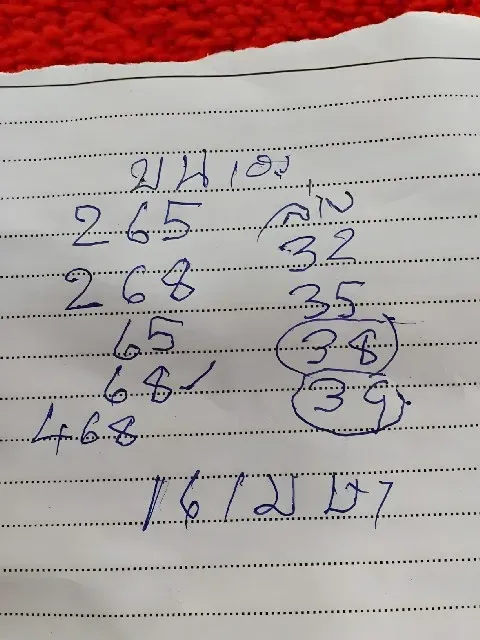 บน
265 ล่าง
268 32
65 35
68✓ 38
468 39
16 เมษา